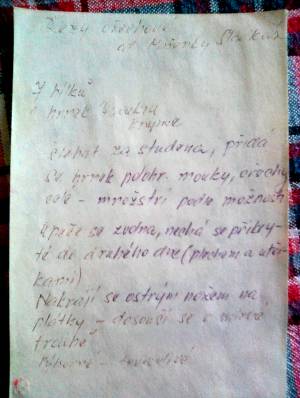 Řezy ořechové
od Mařenky
7 bílků
1 hrnek cukru
krupice
šlehat za studena, přidá
se hrnek polohr. mouky, ořechy
celé - množství podle možností
Upeče se zvolna, nechá se přikry-
té do druhého dne (plechem a utěr-
kami)
Nakrájí se ostrým nožem na
plátky - dosouší se v
troubě
Výborné - trvanlivé